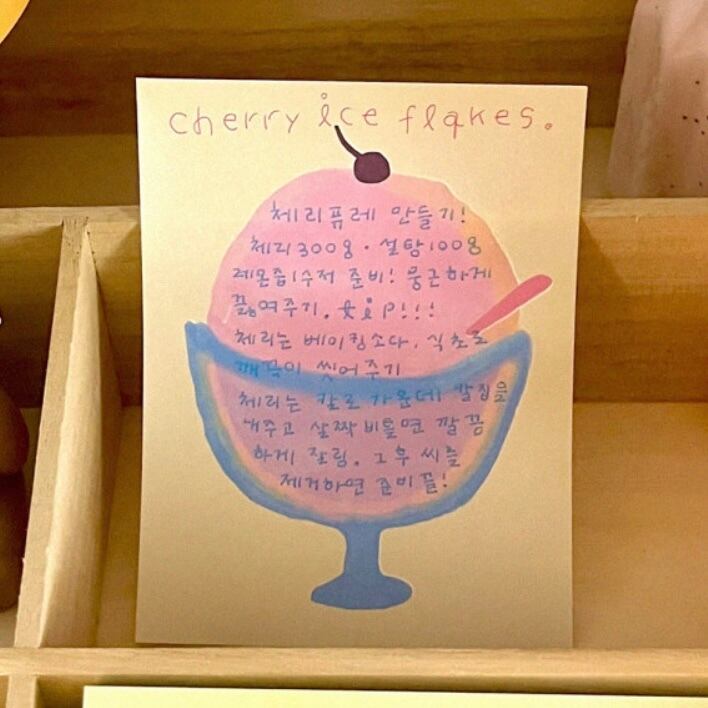 cherry ice flakes.
체리퓨레 만들기!
체리300g · 설탕100g
레몬즙1수저 준비! 뭉근하게
끓여주기. tip!!!
체리는 베이킹소다, 식초로
깨끗이 씻어주기
체리는 칼로 가운데 칼집을
내주고 살짝 비틀면 깔끔
하게 잘림. 그 후 씨를
제거하면 준비끝!